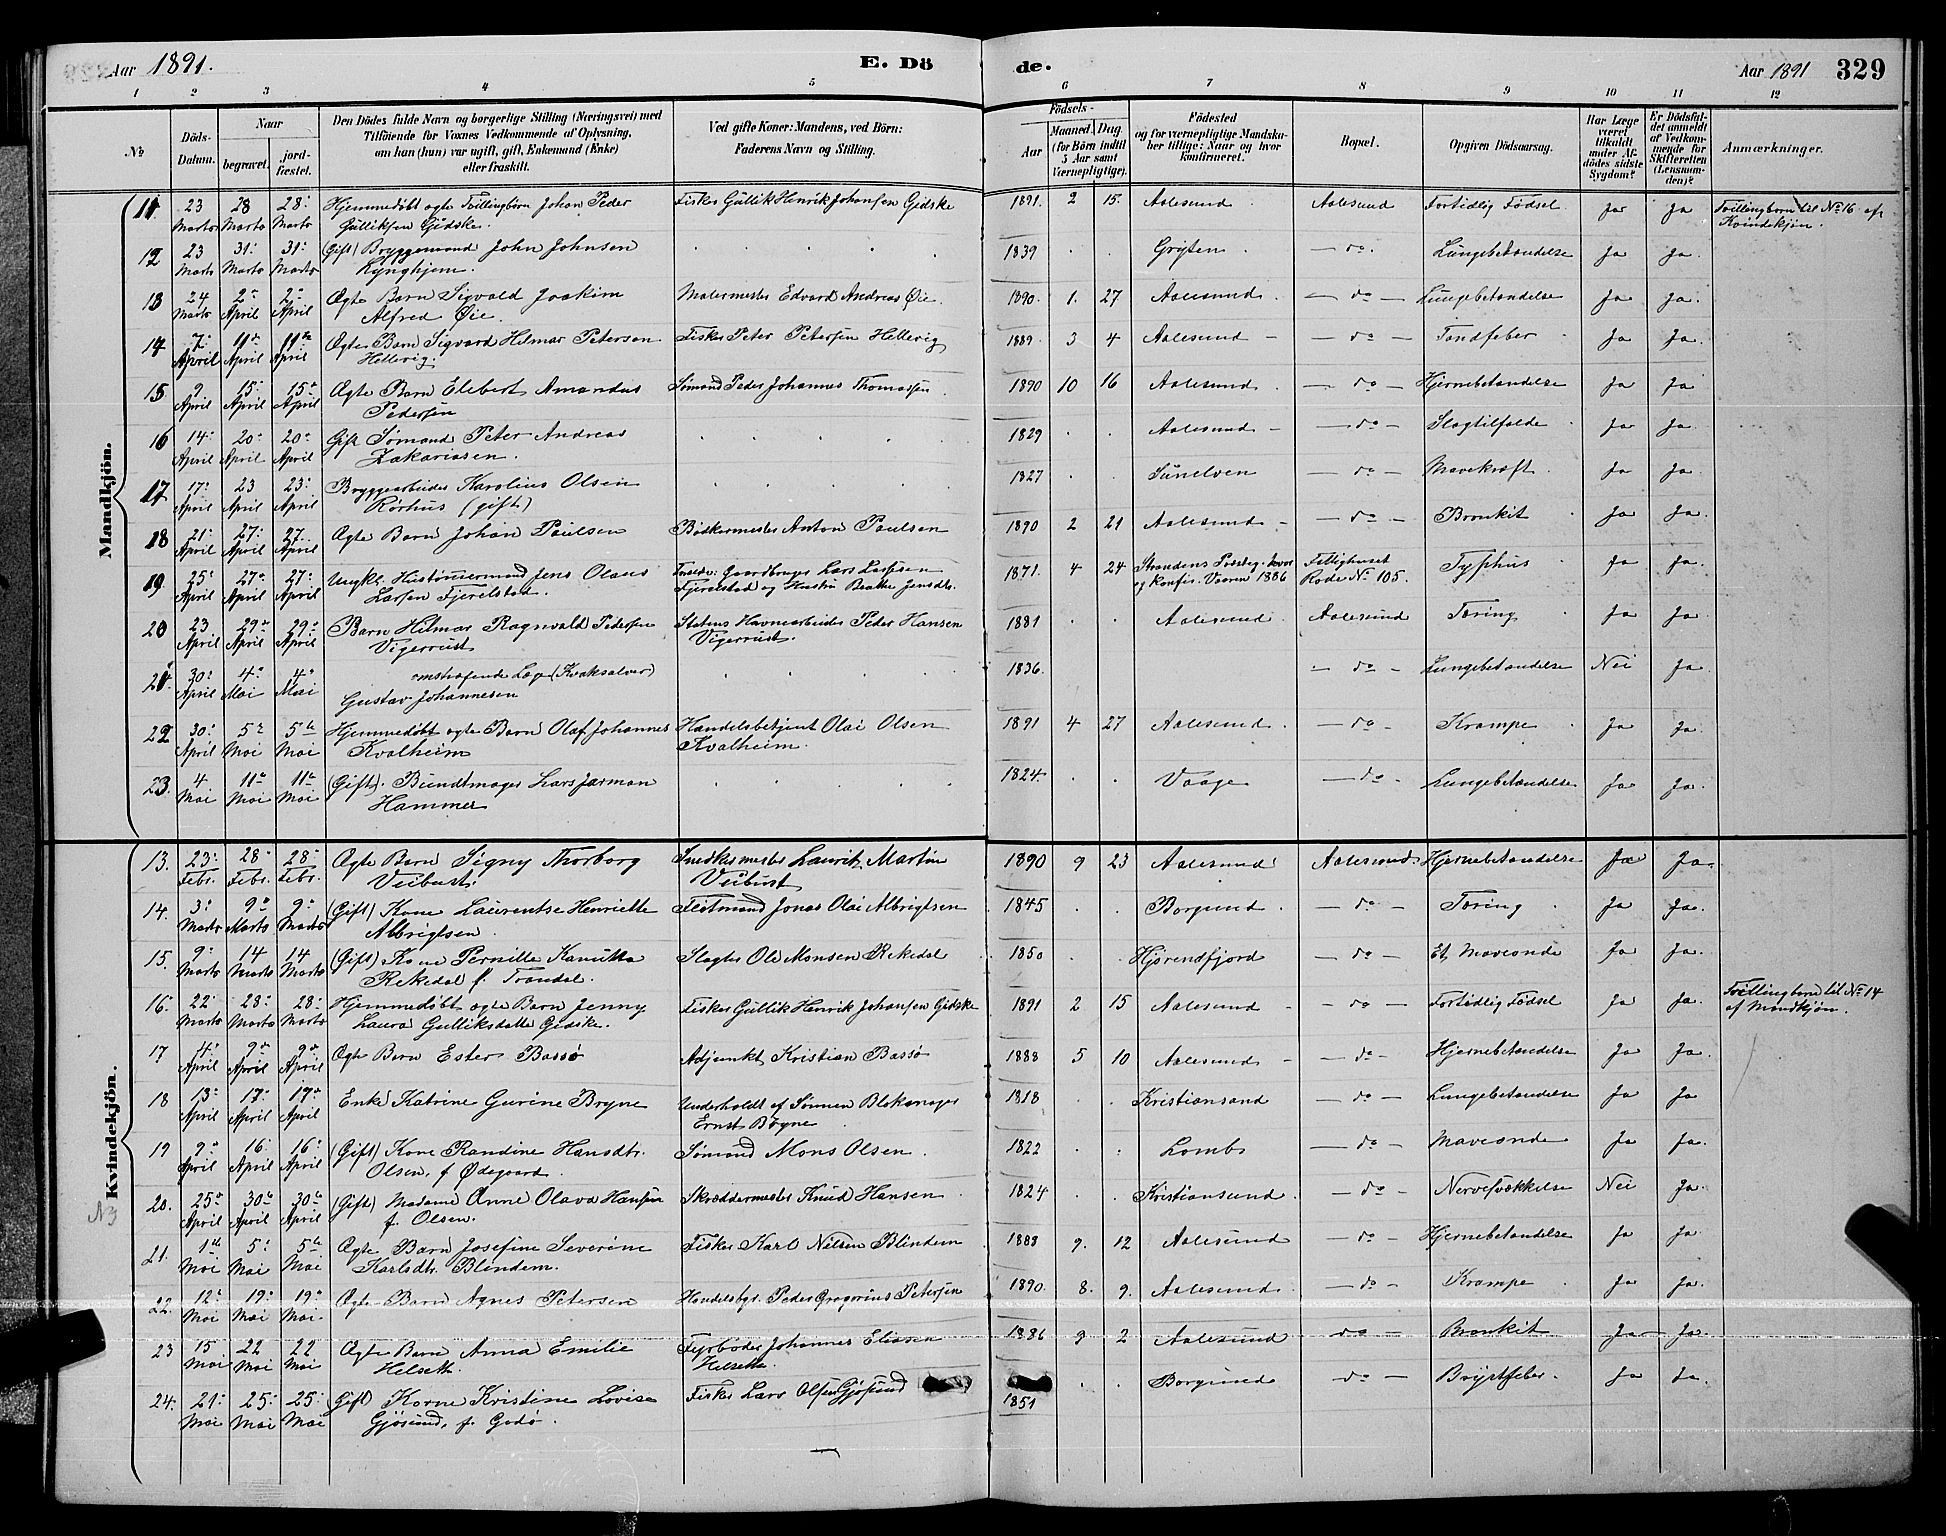 Aar 1891.
E. Dö
de.
Aar 1891
329
1 2 3 4 5 6 7 8 9 10 11 12
No
Döds-Datum.
Naar
begravet.
jord-fæstet.
Den Dödes fulde Navn og borgerlige Stilling (Næringsvei) med
Tilföiende for Voxnes Vedkommende af Oplysning,
om han (hun) var ugift, gift, Enkemand (Enke)
eller fraskilt.
Ved gifte Koner: Mandens, ved Börn:
Faderens Navn og Stilling.
Födsels-
Aar
Maaned. Dag.
(for Börn indtil
5 Aar samt
Værnepligtige).
Födested
og for værnepligtige Mandska-
ber tillige: Naar og hvor
konfirmeret.
Bopæl.
Opgiven Dödsaarsag.
Har Læge
været
tilkaldt
under Af-
dödes sidste
Sygdom?
Er Dödsfal-
det anmeldt
af Vedkom-
mende for
Skifteretten
(Lensman-
den)?
Anmærkninger.
Mandkjön.
11 23 Marts 28 Marts 28 Marts Hjemmedöbt ægte Tvillingbörn Johan Peder Fisker Gullik Henrik Johansen Gidske 1891. 2 15 Aalesund Aalesund Fortidlig Födsel Ja Ja Tvillingbarn til No 16 af
Gulliksen Gidske. Kvindekjön.
12 23 Marts 31 Marts 31 Marts (Gift) Bryggemand John Johnsen 1839 Gryten do Lungebetændelse Ja Ja.
Lynghjem.
13 24 Marts 2 April 2 April Ægte Barn Sigvald Joakim Malermester Edvard Andreas Øie. 1890. 1. 27 Aalesund do Lungebetændelse Ja Ja.
Alfred Øie.
14 7 April 11 April 11 April Ægte Barn Sigvard Hilmar Petersen Fisker Peter Petersen Hellevig 1889 3 4 Aalesund do Tandfeber Ja Ja.
Hellevig.
15 9 April 15 April 15 April Ægte Barn Elebert Amandus Sömand Peder Johannes Thomassen 1890 10 16 Aalesund do Hjernebetændelse Ja Ja
Pedersen
16 14 April 20 April 20 April Gift Sömand Peter Andreas 1829 Aalesund do Slagtilfælde Ja Ja.
Zakariasen.
17. 17 April 23 April 23 April Bryggearbeider Karolius Olsen 1827 Sunelven do Mavekræft Ja Ja.
Rörhus (gift)
18 21 April 27 April 27 April Ægte Barn Johan Paulsen Bödkermester Anton Paulsen 1890 2 21 Aalesund do Bronkit Ja Ja.
19 25 April 27 April 27 April Ungk. Hustömmermand Jens Olaus Gaardbruger Lars Larssen 1871. 4 24 Strandens Vaaren 1886 Fattighuset Typhus Ja Ja.
Larsen Fjerelstad. Fjerelstad og Hustru Beatte Jensdtr. Rode No 105.
20 23 April 29 April 29 April Barn Hilmar Ragnvald Pedersen Statens Havnearbeider Peder Hansen 1881 Aalesund Aalesund Tæring Ja Ja.
Vigerust Vigerust.
21. 30 April 4 Mai 4 Mai omstreifende Læge (Kvaksalver) 1836. do Lungebetændelse Nei Ja.
Gustav Johannesen
22 30 April 5 Mai 5 Mai Hjemmedöbt ægte Barn Olaf Johannes Handelsbetjent Olai Olsen 1891 4 27 Aalesund do Krampe Ja Ja.
Kvalheim Kvalheim.
23. 4 Mai 11 Mai 11 Mai (Gift). Bundtmager Lars Jarman 1824. Vaage do Lungebetændelse Ja Ja.
Hammer
Kvindekjön.
13. 23 Febr. 28 Febr. 28 Febr. Ægte Barn Signy Thorborg Snedkermester Laurit Martin 1890 9 23 Aalesund Aalesund Hjernebetændelse Ja Ja.
Veibust. Veibust
14. 3 Marts 9 Marts 9 Marts (Gift) Kone Laurentse Henriette Flotmand Jonas Olai Albrigtsen 1845 Borgund do Tæring Ja Ja.
Albrigtsen.
15. 9 Marts 14 Marts 14 Marts (Gift) Kone Pernille Kanutta Slagter Ole Monsen Rekedal 1850 Hjörendfjord do Et Maveonde Ja Ja.
Rekedal f. Trandal.
16. 22 Marts 28 Marts 28 Marts Hjemmedöbt ægte Barn Jenny Fisker Gullik Henrik Johansen Gidske 1891 2 15 Aalesund do Fortidlig Födsel Ja Ja. Tvillingbarn til No 14
Laura Gulliksdatter Gidske. af Mandkjön.
17 4 April 9 April 9 April Ægte Barn Ester Bassö Adjunkt Kristian Bassö 1888 5 10 Aalesund do Hjernebetændelse Ja Ja.
18 13 April 17 April 17 April Enke Katrine Gurine Bryne Underholdt af Sönnen Blokmager 1818 Kristiansand do Lungebetændelse Ja Ja
Ernst Bryne
19 9 April 16 April 16 April (Gift) Kone Randine Hansdtr. Sömand Mons Olsen. 1822 Lomb do Maveonde Ja Ja.
Olsen, f Ødegaard.
20. 25 April 30 April 30 April (Gift) Madame Anne Olava Hansen Skræddermester Knud Hansen 1824 Kristiansund do Nervesvækkelse Nei Ja.
f. Olsen.
21. 1 Mai 5 Mai 5 Mai Ægte Barn Josefine Severine Fisker Karl Nilsen Blindem 1888 9. 12 Aalesund do Hjernebetændelse Ja Ja.
Karlsdtr. Blindem.
22. 12 Mai 19 Mai 19 Mai Ægte Barn Agnes Petersen Handelsbgr. Peder Gregorius Petersen 1890 8. 9. Aalesund do Krampe Ja Ja.
23 15 Mai 22 Mai 22 Mai Ægte Barn Anna Emilie Fyrböder Johannes Eliasen 1886 9 2 Aalesund do Bronkit Ja Ja.
Helseth. Helseth.
24. 21 Mai 25 Mai 25 Mai Gift Kone Kristine Lovise Fisker Lars Olsen Gjösund 1851 Borgund do Brystfeber Ja Ja.
Gjösund, f. Godö.